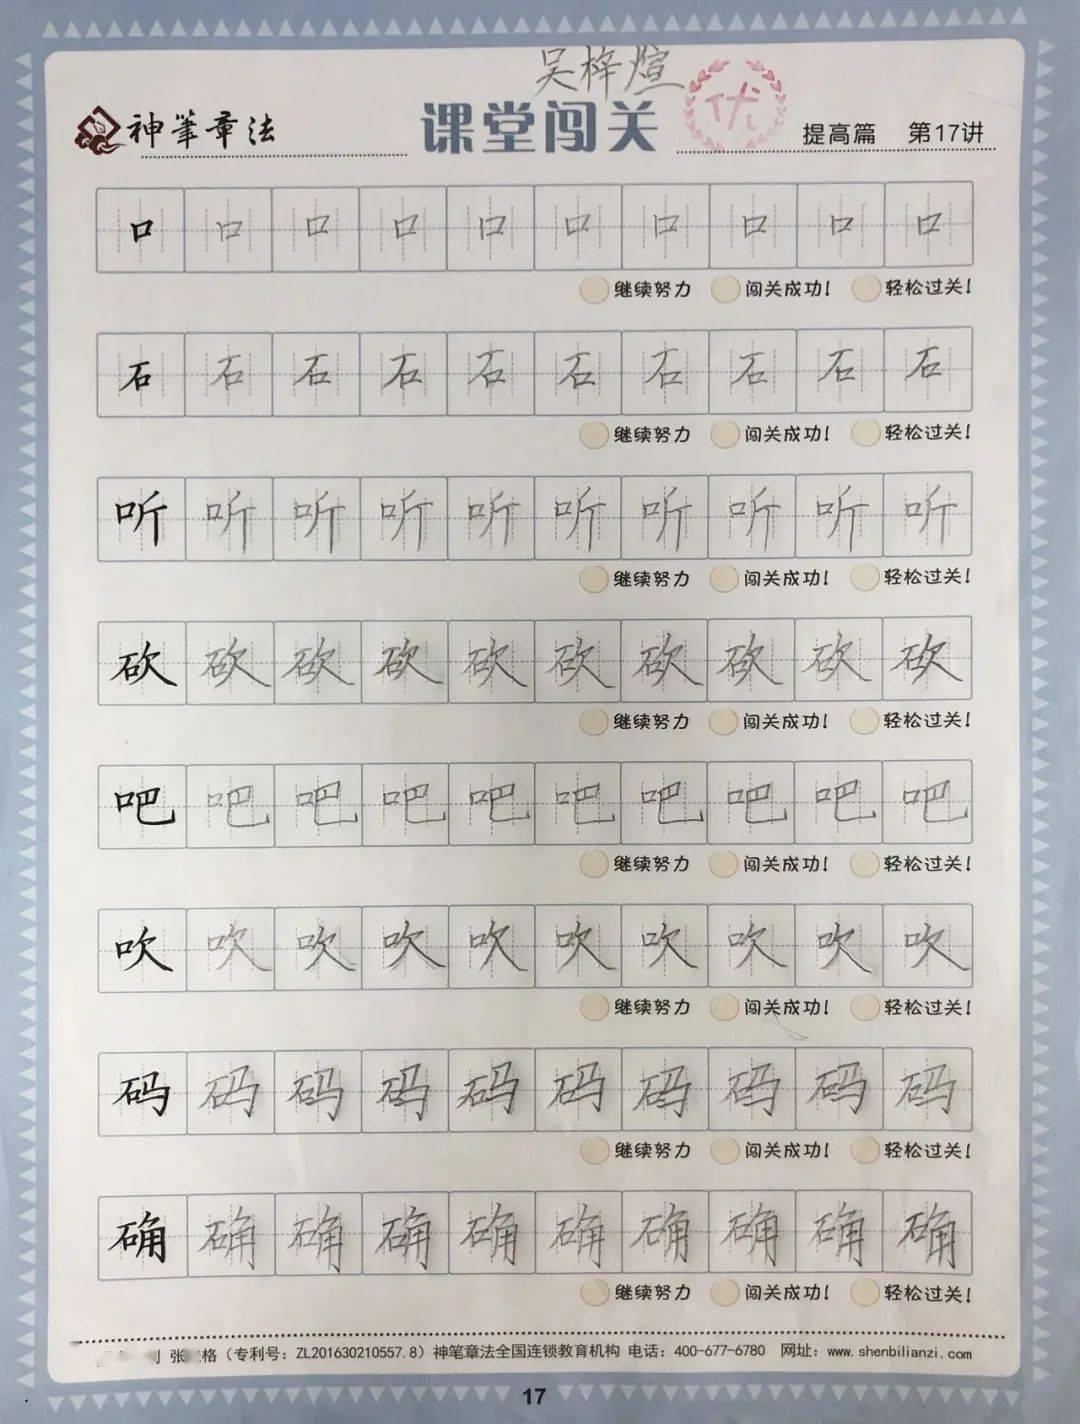 吴梓煊
神筆章法 课堂闯关 优 提高篇 第17讲
口 口 口 口 口 口 口 口 口 口
继续努力 闯关成功! 轻松过关!
石 石 石 石 石 石 石 石 石 石
继续努力 闯关成功! 轻松过关!
听 听 听 听 听 听 听 听 听 听
继续努力 闯关成功! 轻松过关!
砍 砍 砍 砍 砍 砍 砍 砍 砍 砍
继续努力 闯关成功! 轻松过关!
吧 吧 吧 吧 吧 吧 吧 吧 吧 吧
继续努力 闯关成功! 轻松过关!
吹 吹 吹 吹 吹 吹 吹 吹 吹 吹
继续努力 闯关成功! 轻松过关!
码 码 码 码 码 码 码 码 码 码
继续努力 闯关成功! 轻松过关!
确 确 确 确 确 确 确 确 确 确
继续努力 闯关成功! 轻松过关!
张 格（专利号：ZL201630210557.8）神笔章法全国连锁教育机构 电话：400-677-6780 网址：www.shenbilianzi.com
17